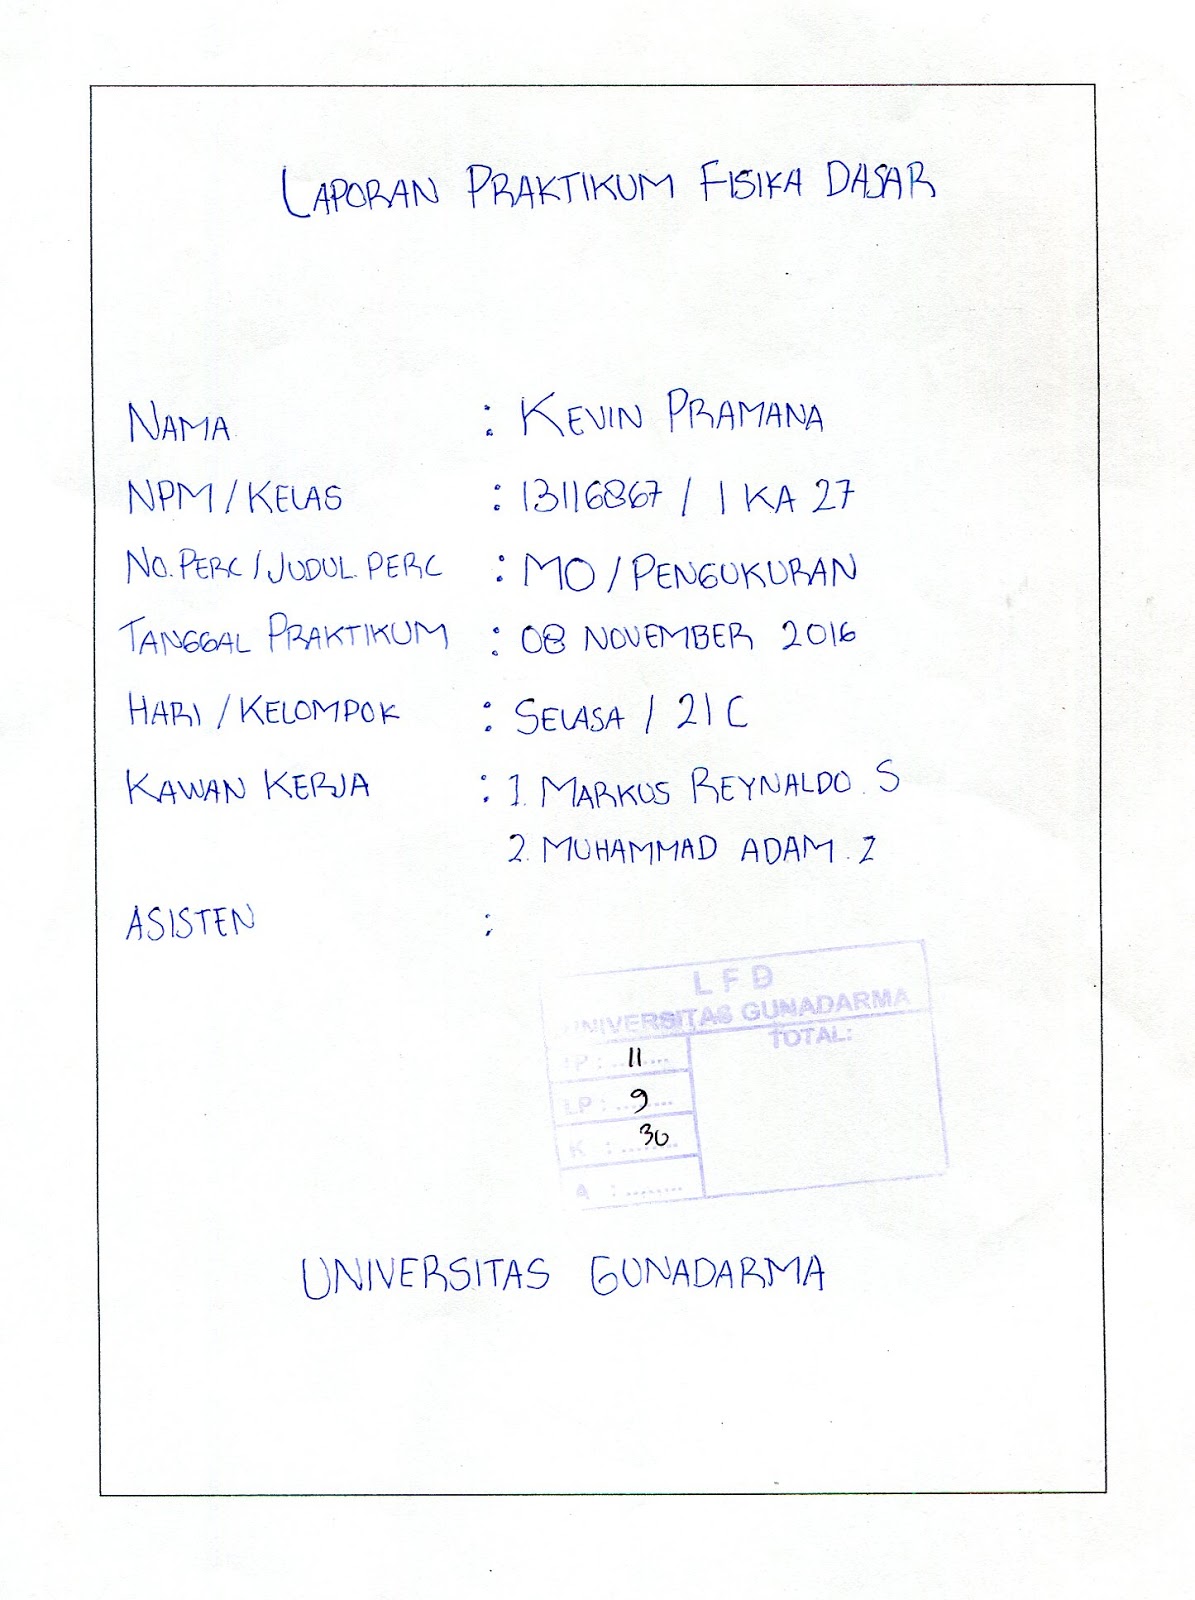 LAPORAN PRAKTIKUM FISIKA DASAR
NAMA : KEVIN PRAMANA
NPM / KELAS : 13116867 / 1 KA 27
NO. PERC / JUDUL. PERC : MO / PENGUKURAN
TANGGAL PRAKTIKUM : 08 NOVEMBER 2016
HARI / KELOMPOK : SELASA / 21 C
KAWAN KERJA : 1. MARKUS REYNALDO. S
2. MUHAMMAD ADAM. Z
ASISTEN :
L F D
UNIVERSITAS GUNADARMA
TOTAL:
P : 11
LP : 9
K : 30
A : ........
UNIVERSITAS GUNADARMA